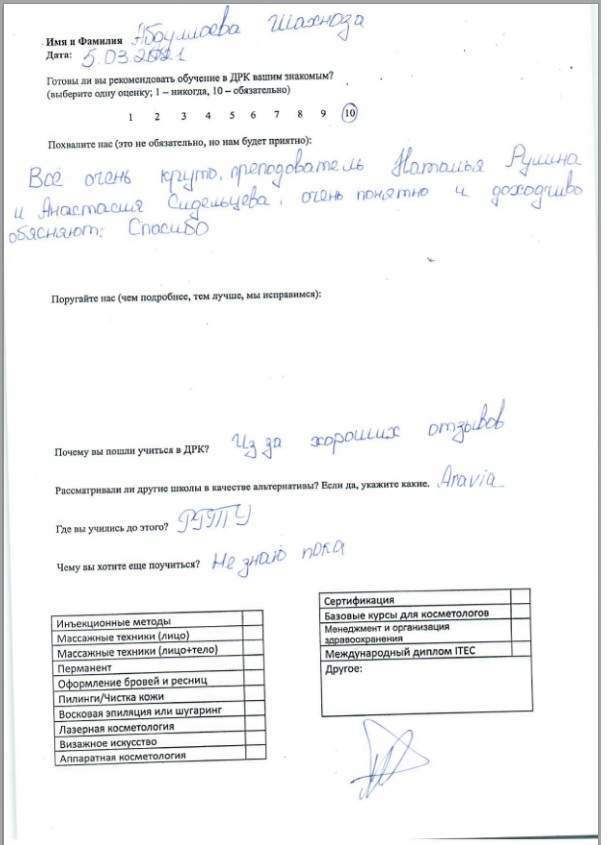 Имя и Фамилия Абдуллаева Шахноза
Дата: 5.03.2021
Готовы ли вы рекомендовать обучение в ДРК вашим знакомым?
(выберите одну оценку; 1 – никогда, 10 – обязательно)
1 2 3 4 5 6 7 8 9 10
Похвалите нас (это не обязательно, но нам будет приятно):
Всё очень круто, преподователь Наталья Рулина
и Анастасия Сидельцева, очень понятно и доходчиво
обясняют. Спасибо
Поругайте нас (чем подробнее, тем лучше, мы исправимся):
Почему вы пошли учиться в ДРК? Из за хороших отзывов
Рассматривали ли другие школы в качестве альтернативы? Если да, укажите какие. Aravia
Где вы учились до этого? РГПУ
Чему вы хотите еще поучиться? Не знаю пока
Инъекционные методы
Массажные техники (лицо)
Массажные техники (лицо+тело)
Перманент
Оформление бровей и ресниц
Пилинги/Чистка кожи
Восковая эпиляция или шугаринг
Лазерная косметология
Визажное искусство
Аппаратная косметология
Сертификация
Базовые курсы для косметологов
Менеджмент и организация
здравоохранения
Международный диплом ITEC
Другое: